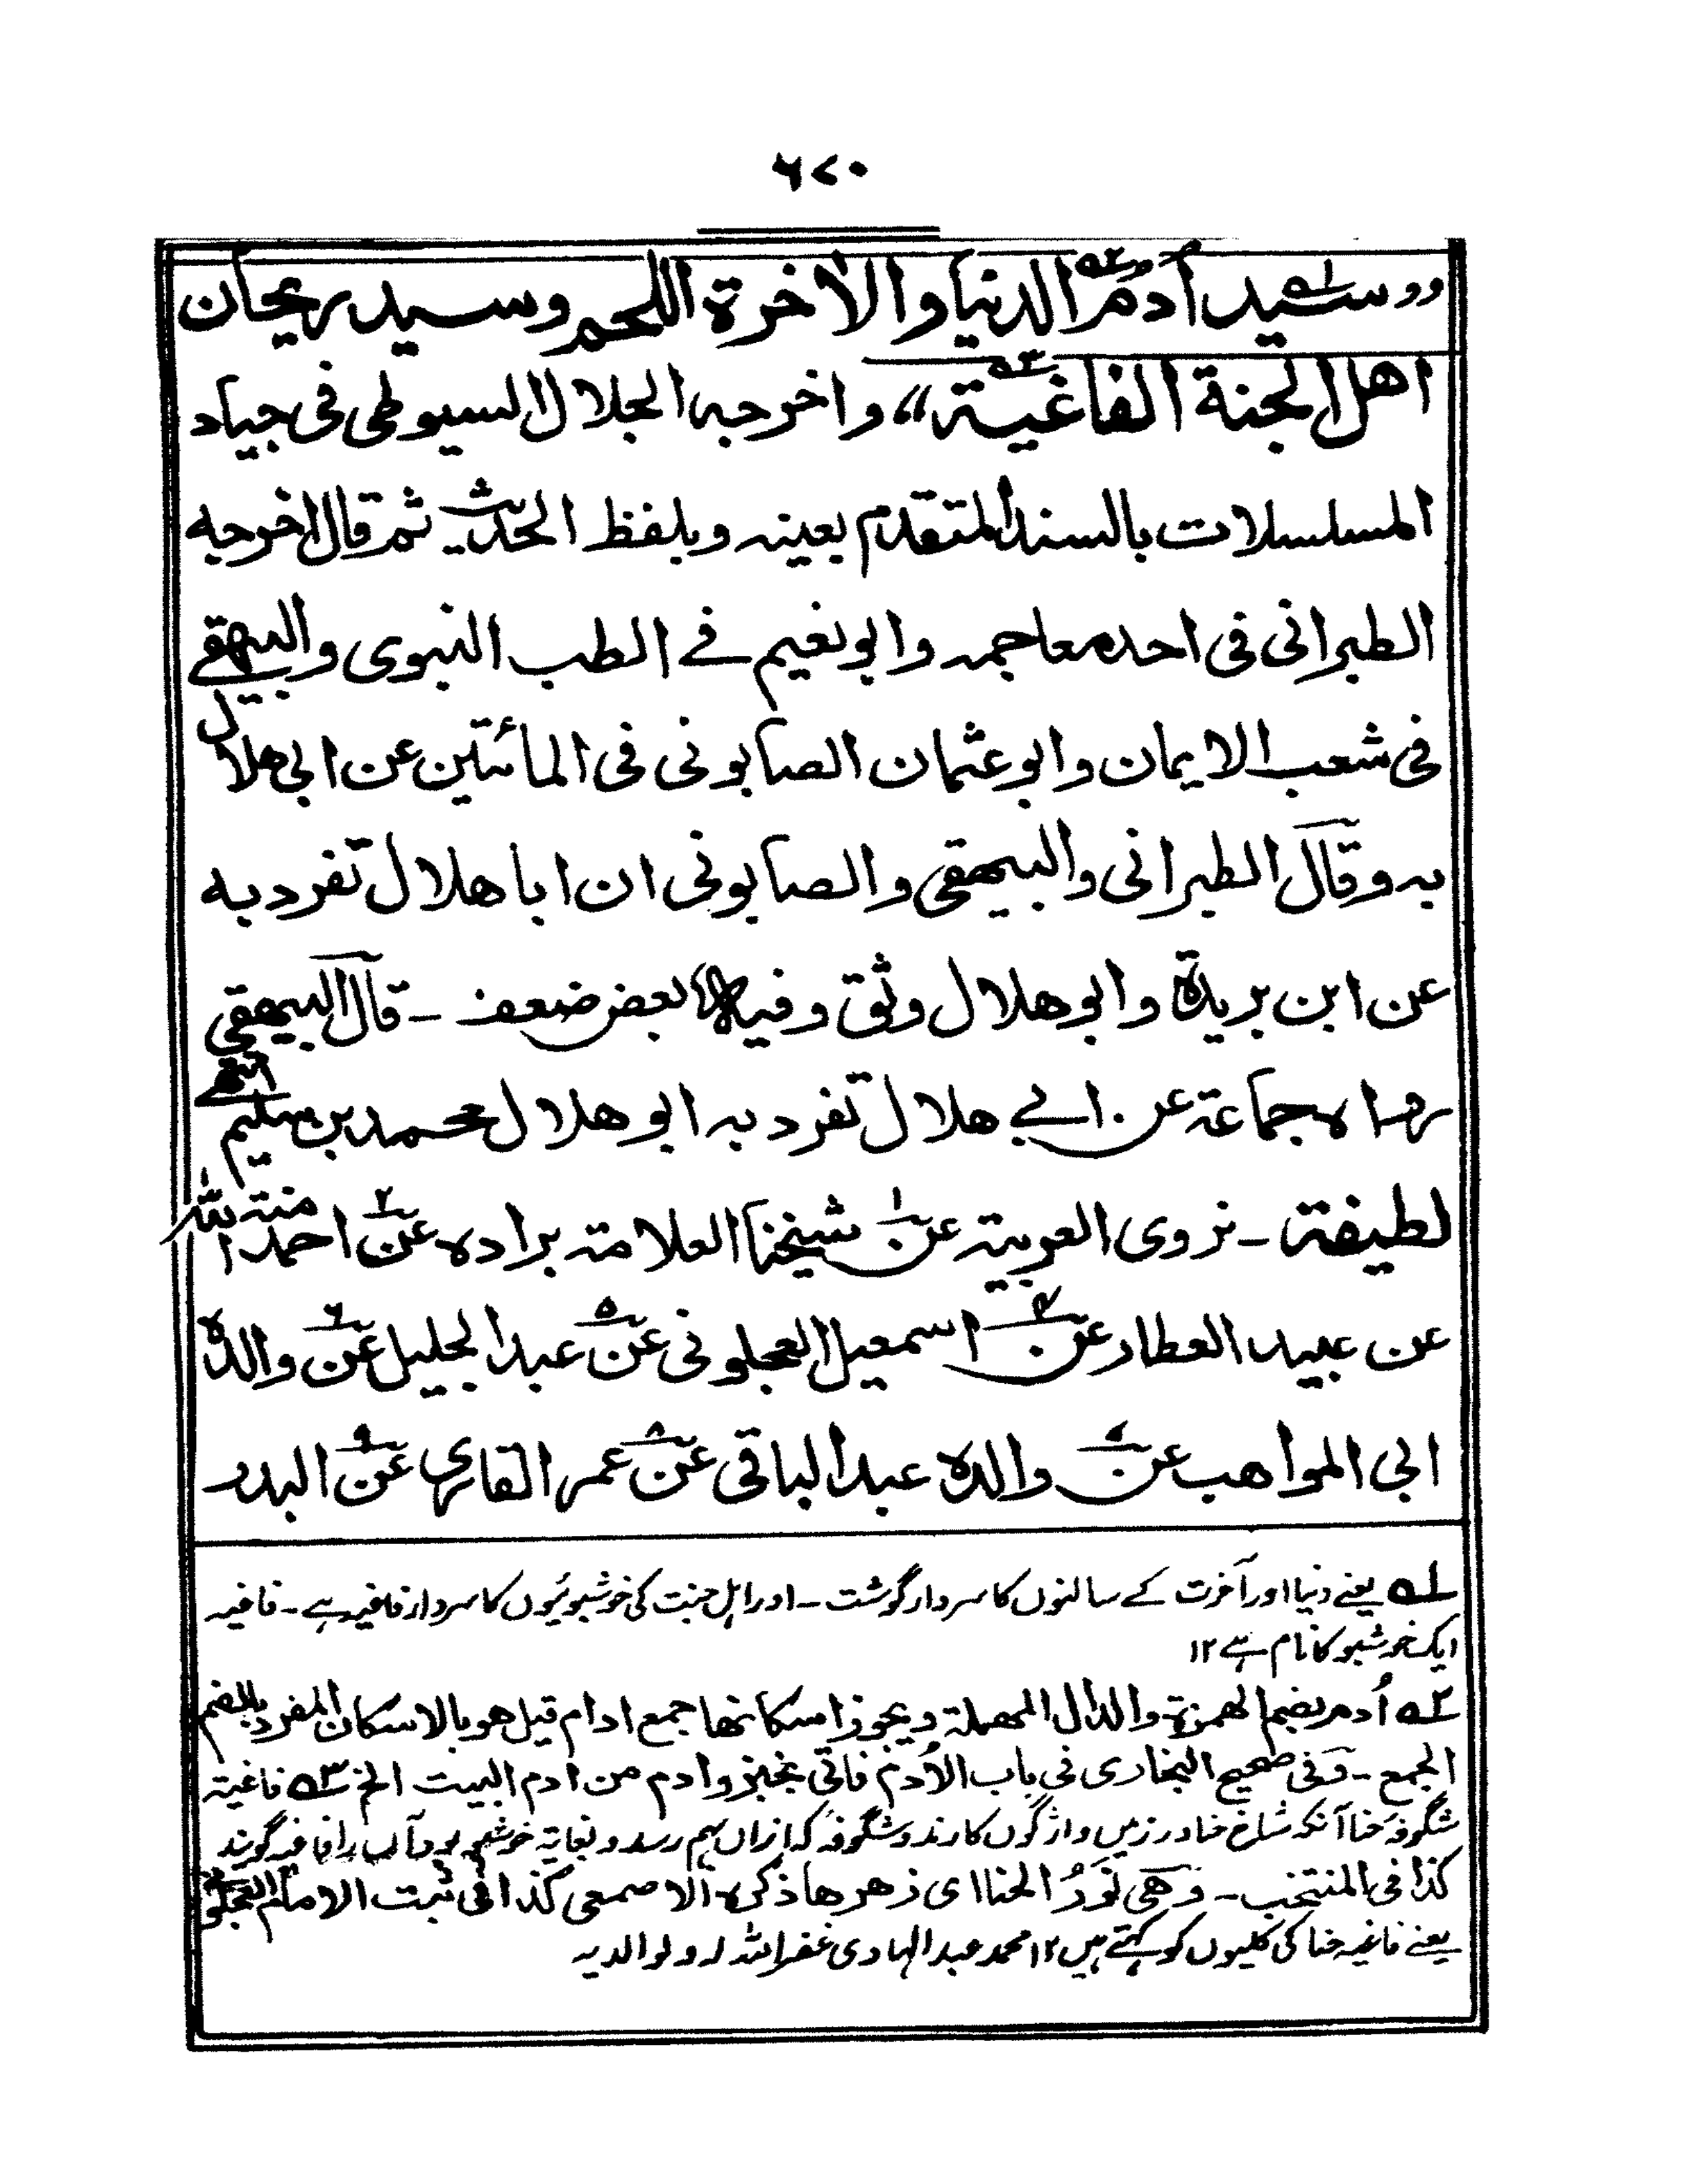 ٦٧٠
”سيد أُدُم الدنيا والآخرة اللحم وسيد ريحان
اهل الجنة الفاغية“ واخرجه الجلال السيوطى فى جياد
المسلسلات بالسند المتقدم بعينه وبلفظ الحديث ثم قال اخرجه
الطبرانى فى احد معاجمه وابو نعيم فے الطب النبوى والبيهقے
فى شعب الايمان وابو عثمان الصابونى فى المائتين عن ابى هلال
به وقال الطبرانى والبيهقى والصابونى ان ابا هلال تفرد به
عن ابن بريدة وابو هلال وثق وفيه بعض ضعف ـ قال البيهقى
رواه جماعة عن ابے هلال تفرد به ابو هلال محمد بن سليم انتهے
لطيفة ـ نروى العربية عن١ شيخنا العلامة براده عن٢ احمد منة الله
عن عبيد العطار عن٤ اسمعيل العجلونى عن٥ عبد الجليل عن٦ والده
ابى المواهب عن٧ والده عبد الباقى عن٨ عمر القارى عن٩ البدر
ـ١ـه يعنے دنيا اور آخرت کے سالنوں کا سردار گوشت ـ اور اہل جنت کی خوشبوئیوں کا سردار فاغیہ ہے ـ فاغیہ
ایک خوشبو کا نام ہے ١٢
ـ٢ـه اُدم بضم الهمزة والدال المهملة ويجوز اسكانها جمع ادام قيل هو بالاسكان المفرد بالضم
الجمع ـ وفى صحيح البخارى فى باب الأدم فاتى بخبز وادم من ادم البيت الخ ـ٣ـه فاغية
شگوفۂ حنا آنکہ شاخ حنا در زمیں واژگوں کارند و شگوفہ کہ ازاں بہم رسد و بغایۃ خوشبو بود آں را فاغیہ گویند
كذا فى المنتخب ـ وهى نَورُ الحنا اى زهرها ذكره الاصمعى كذا فى ثبت الامام العجلونى
یعنے فاغیہ حنا کی کلیوں کو کہتے ہیں ١٢ محمد عبد الہادی غفر اللہ لہ ولوالدیہ